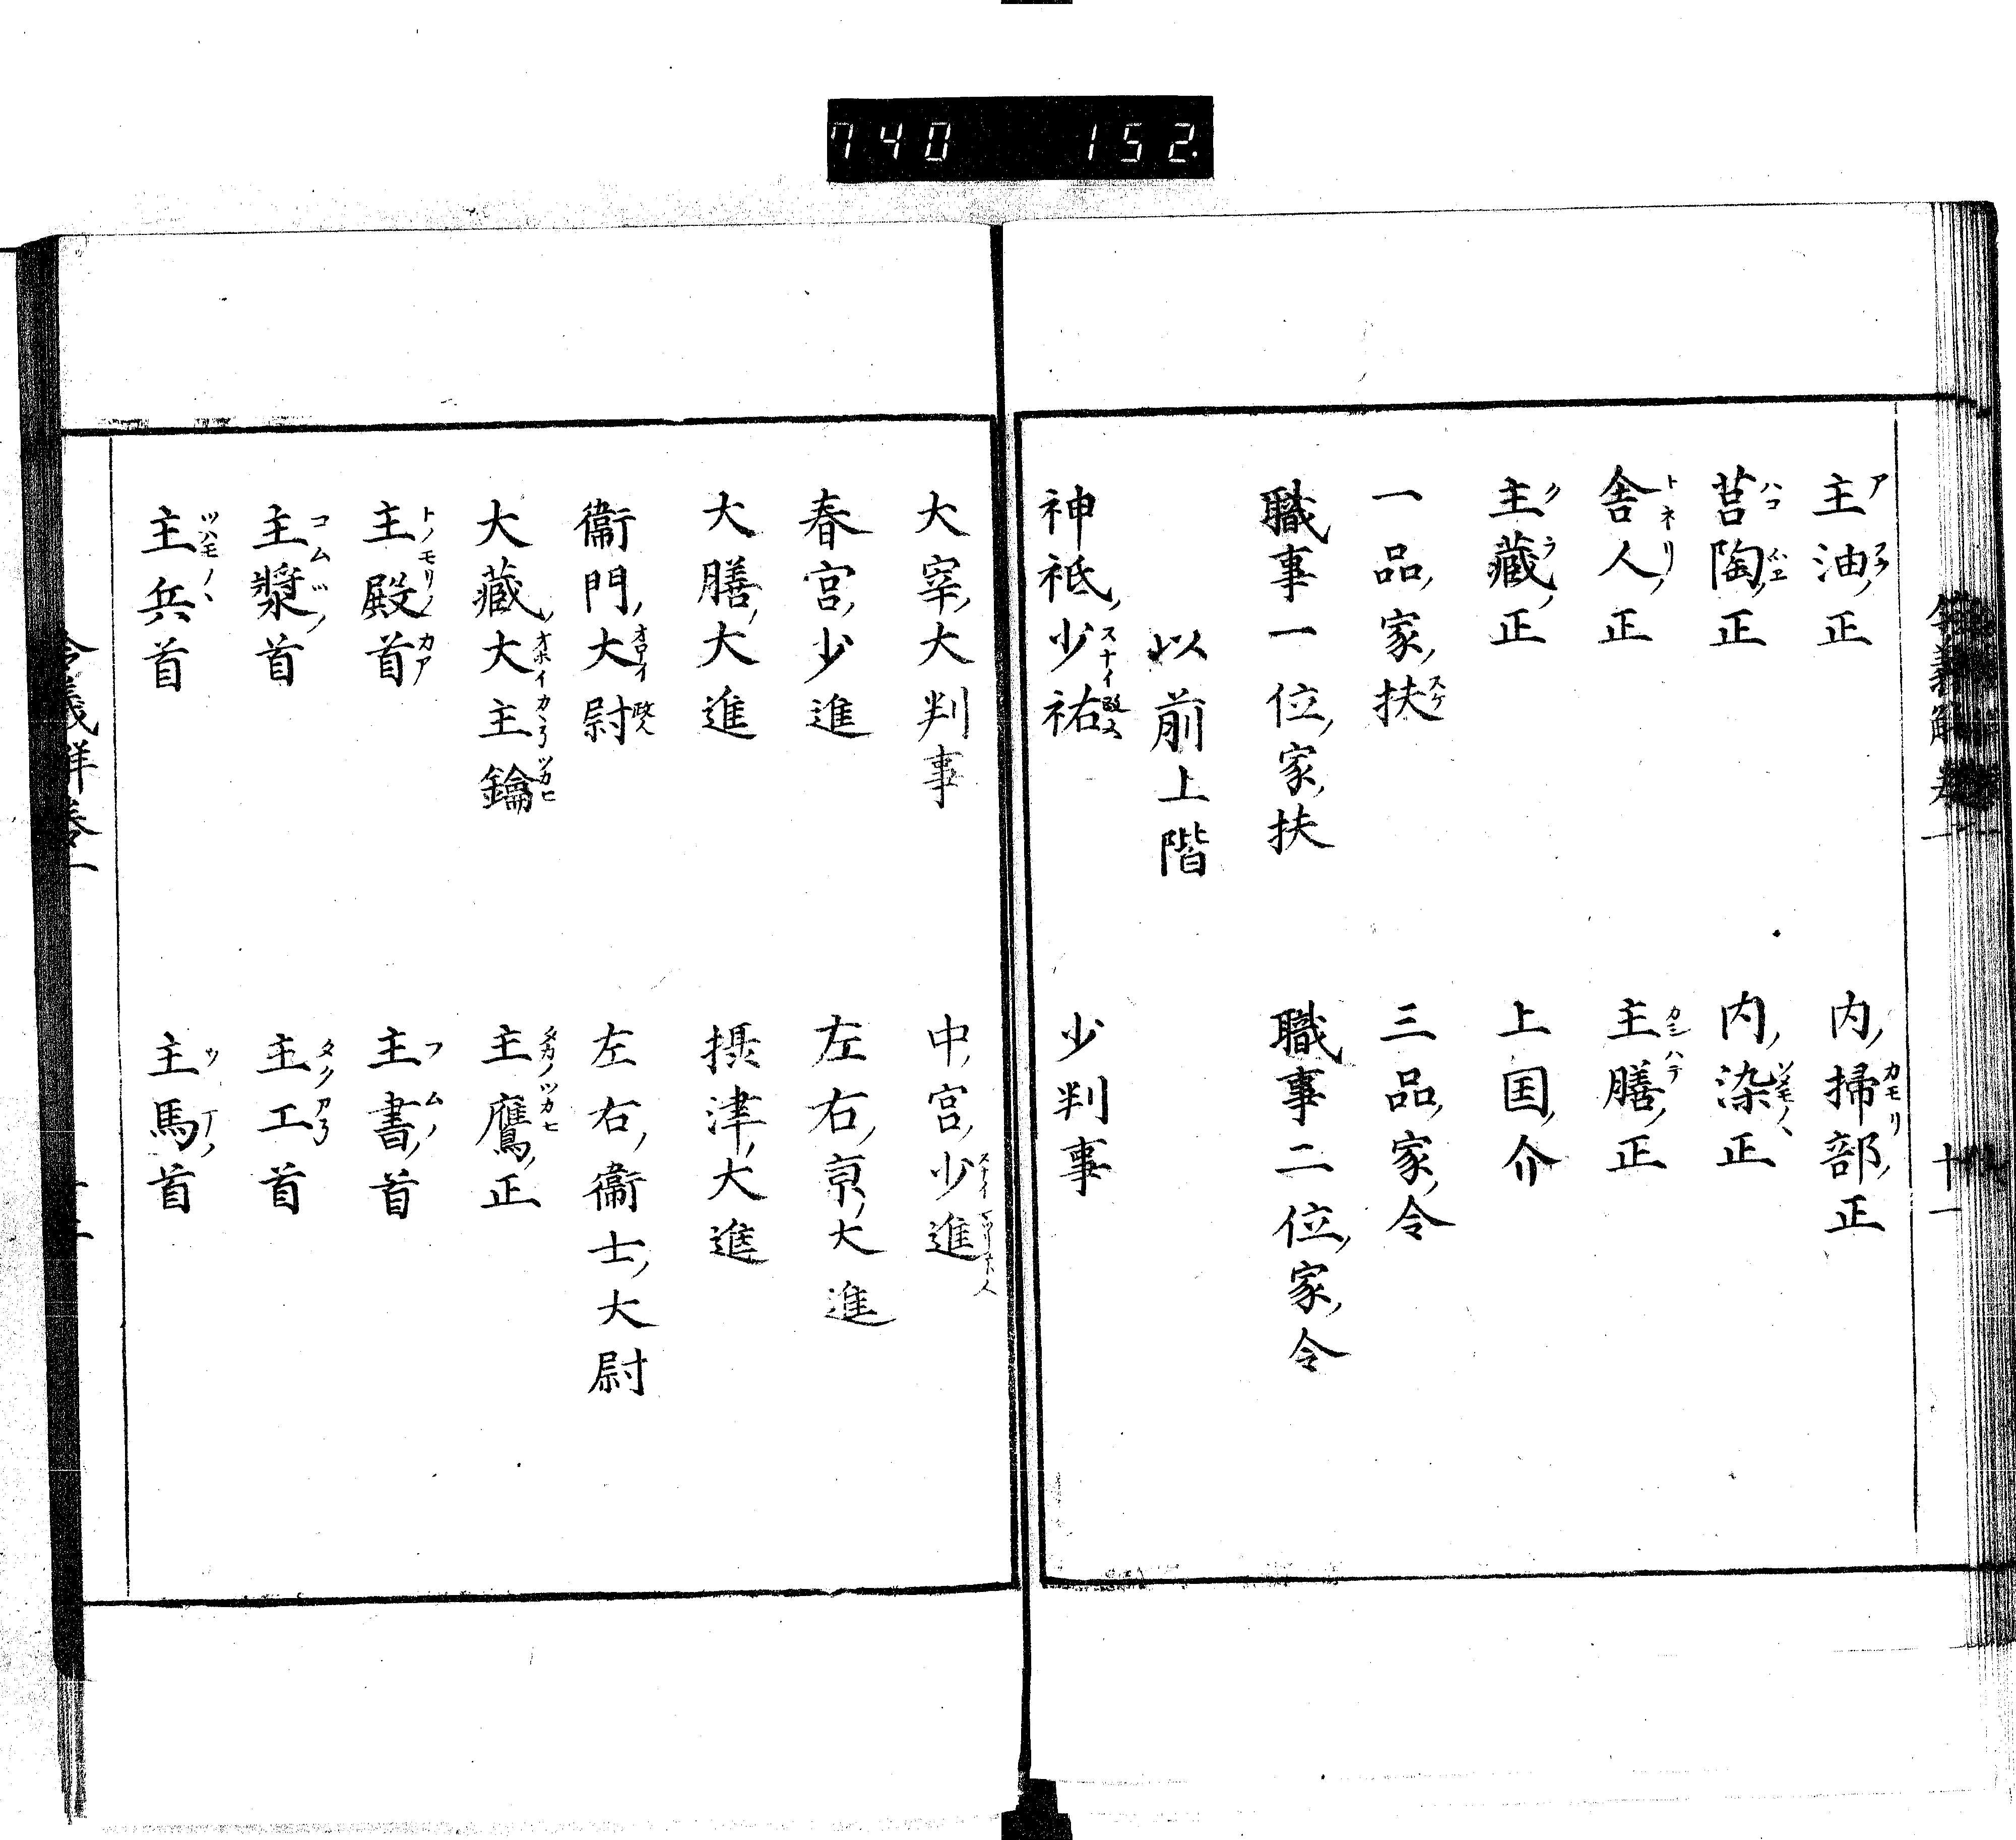 740 152.
主油正 内掃部正
筥陶正 内染正
舎人正 主膳正
主藏正 上国介
一品家扶 三品家令
職事一位家扶 職事二位家令
以前上階
神祗少祐 少判事
大宰大判事 中宮少進
春宮少進 左右亰大進
大膳大進 摂津大進
衞門大尉 左右衞士大尉
大藏大主鑰 主鷹正
主殿首 主書首
主漿首 主工首
主兵首 主馬首